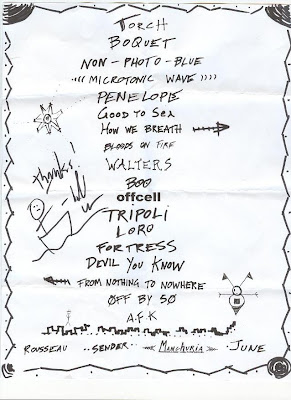 TORCH
BOQUET
NON-PHOTO-BLUE
"(((MICROTONIC WAVE))))
PENELOPE
GOOD TO SEA
HOW WE BREATH
BLOODS ON FIRE
WALTERS
BOO
offcell
TRIPOLI
LORO
FORTRESS
DEVIL YOU KNOW
FROM NOTHING TO NOWHERE
OFF BY 50
A.F.K
ROUSSEAU ..SENDER.. MANCHURIA JUNE
Thanks!